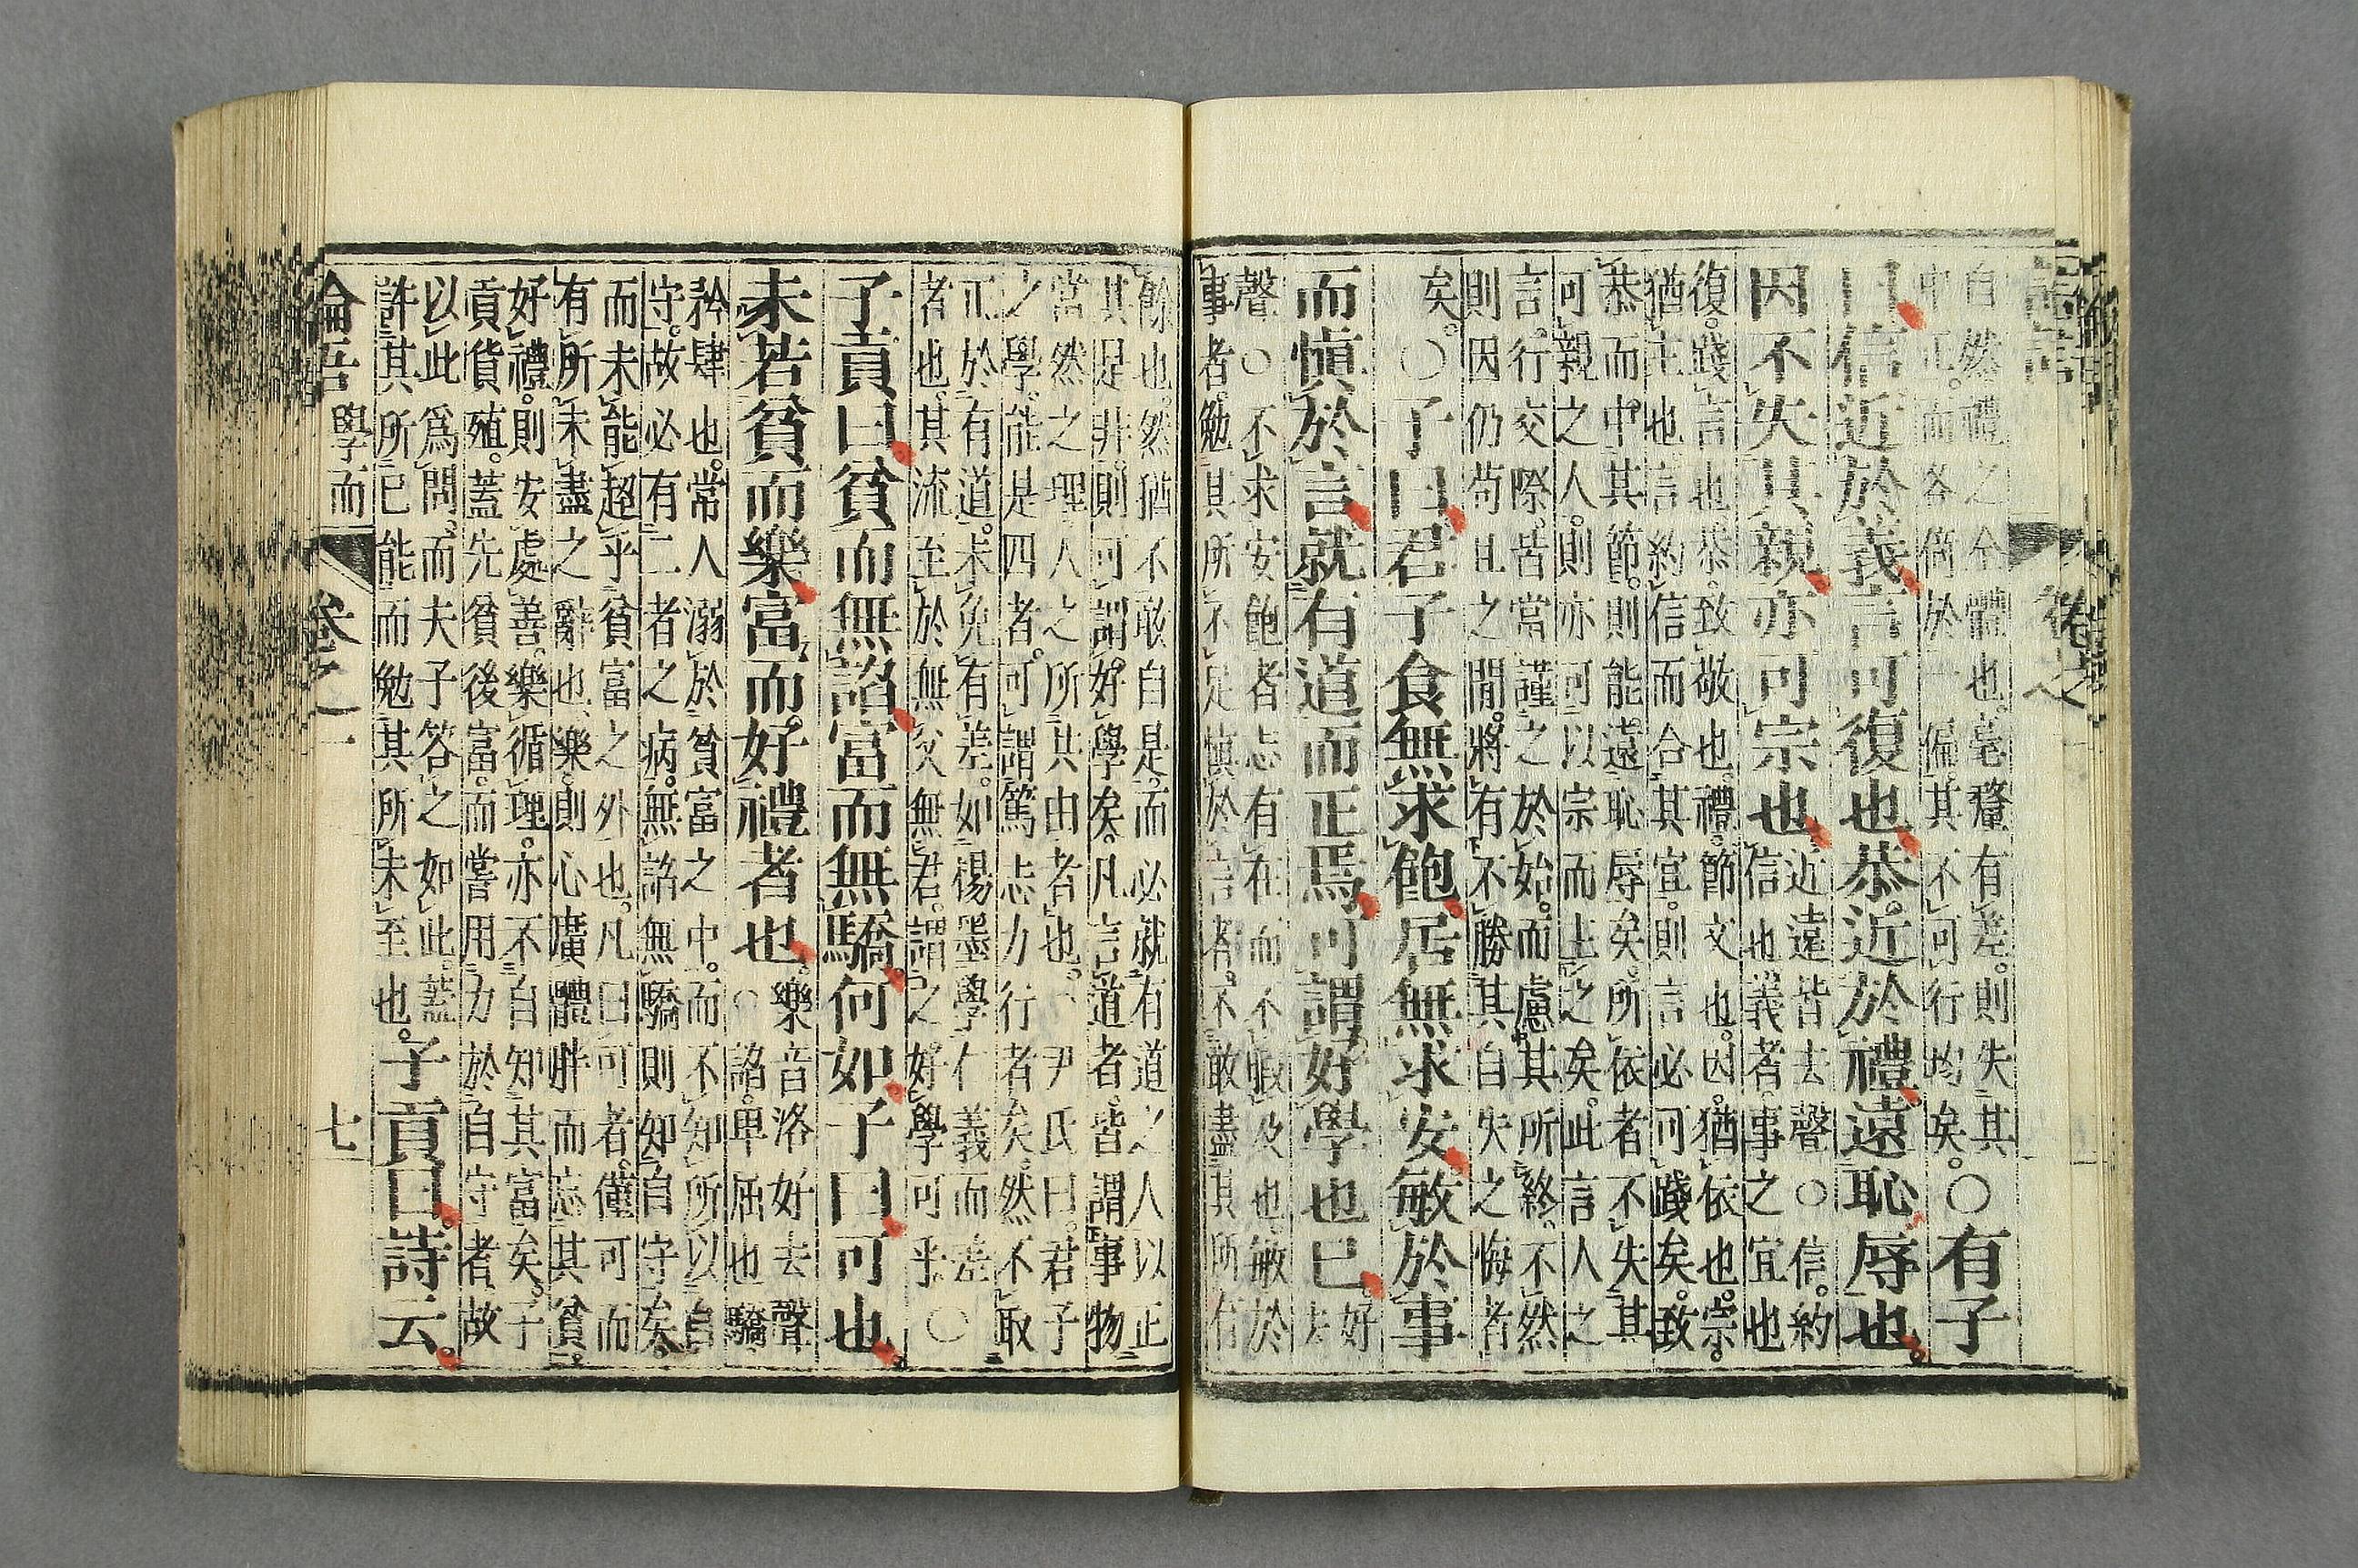 自然禮之全體也。毫釐有差。則失其
中正。而各倚於一偏。其不可行均矣。〇有子
曰信近於義言可復也恭近於禮遠恥辱也。
因不失其親亦可宗也
近遠皆去聲〇信。約
信也義者。事之宜也
復。踐言也。恭。致敬也。禮。節文也。因。猶依也。宗。
猶主也。言約信而合其宜。則言必可踐矣。致
恭而中其節。則能遠恥辱矣。所依者不失其
可親之人。則亦可以宗而主之矣。此言人之
言行交際。皆當謹之於始。而慮其所終。不然
則因仍苟且之閒。將有不勝其自失之悔者
矣。〇子曰君子食無求飽居無求安敏於事
而慎於言就有道而正焉可謂好學也已
好
去
聲〇不求安飽者志有在而不暇及也敏於
事者。勉其所不足。慎於言者。不敢盡其所有
餘也。然猶不敢自是。而必就有道之人以正
其是非。則可謂好學矣。凡言道者。皆謂事物
當然之理人之所共由者也。〇尹氏曰。君子
之學。能是四者。可謂篤志力行者矣。然不取
正於有道。未免有差。如楊墨學仁義而差
者也。其流至於無父無君。謂之好學可乎〇
子貢曰貧而無諂富而無驕何如子曰可也
未若貧而樂富而好禮者也
樂音洛好去聲
〇諂。卑屈也驕
矜肆也。常人溺於貧富之中。而不知所以自
守。故必有二者之病。無諂無驕則知自守矣。
而未能超乎貧富之外也。凡曰可者。僅可而
有所未盡之辭也。樂。則心廣體胖而忘其貧。
好禮。則安處善。樂循理。亦不自知其富矣。子
貢貨殖。蓋先貧後富。而嘗用力於自守者。故
以此爲問。而夫子答之如此。蓋
許其所已能而勉其所未至也。
子貢曰詩云
論吾 學而 卷之一 七